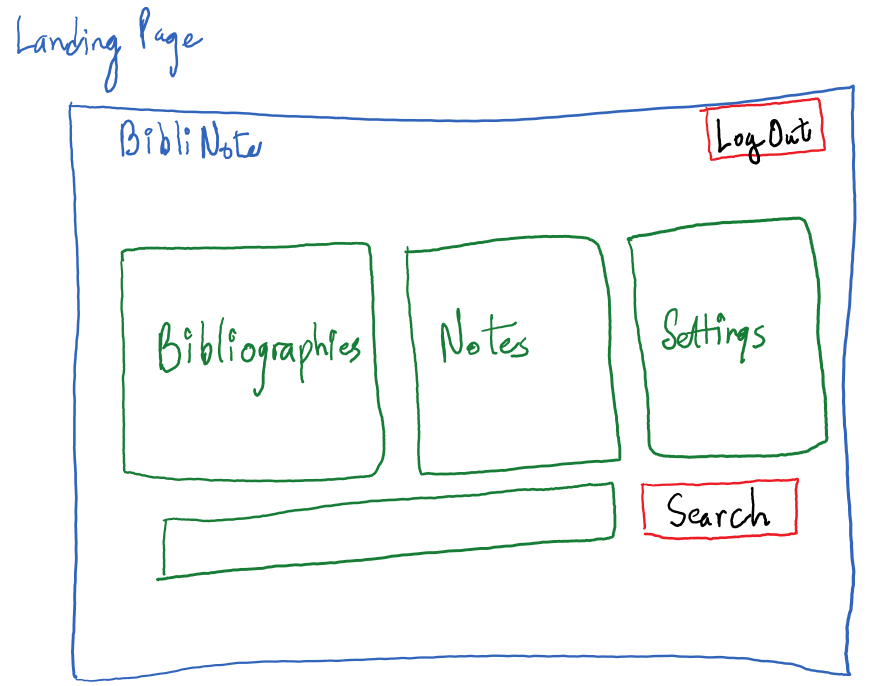 Landing Page
BibliNote
Log Out
Bibliographies
Notes
Settings
Search